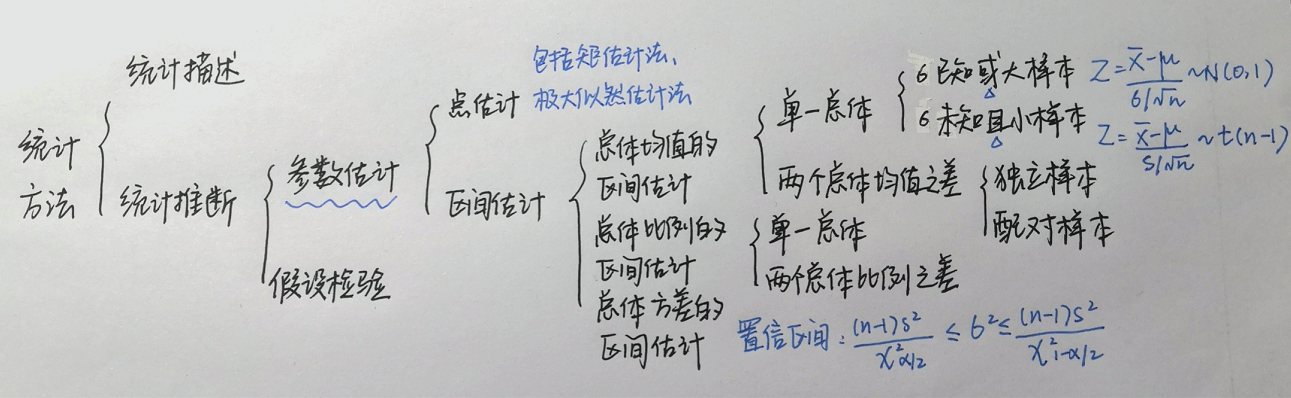 统计方法
统计描述
统计推断
参数估计
假设检验
点估计
包括矩估计法、
极大似然估计法
区间估计
总体均值的
区间估计
单一总体
σ已知或大样本 Z=(x̄-μ)/(σ/√n)~N(0,1)
σ未知且小样本 Z=(x̄-μ)/(s/√n)~t(n-1)
两个总体均值之差
独立样本
配对样本
总体比例的
区间估计
单一总体
两个总体比例之差
总体方差的
区间估计
置信区间:(n-1)s²/χ²α/2 ≤ σ² ≤ (n-1)s²/χ²1-α/2